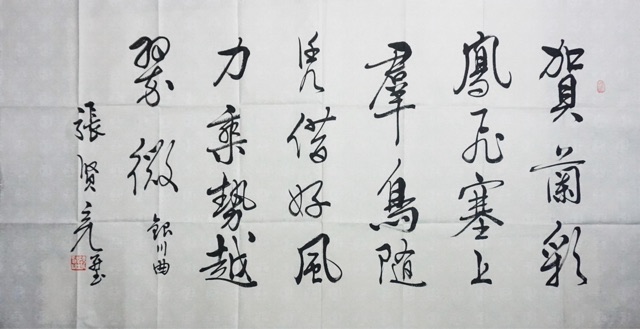 賀蘭彩
鳳飛塞上
羣鳥随
凭借好風
力乘勢越
翠微 銀川曲
張賢亮